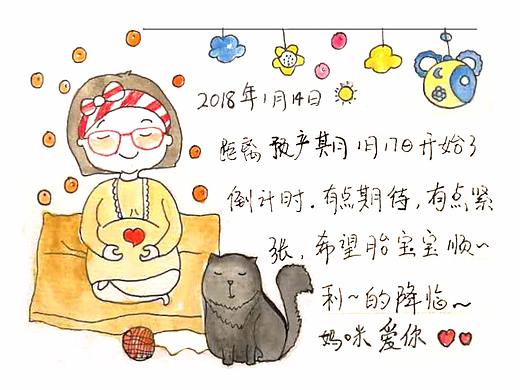 2018年1月14日
距离预产期1月17日开始了
倒计时.有点期待,有点紧
张,希望胎宝宝顺~
利~的降临~
妈咪爱你